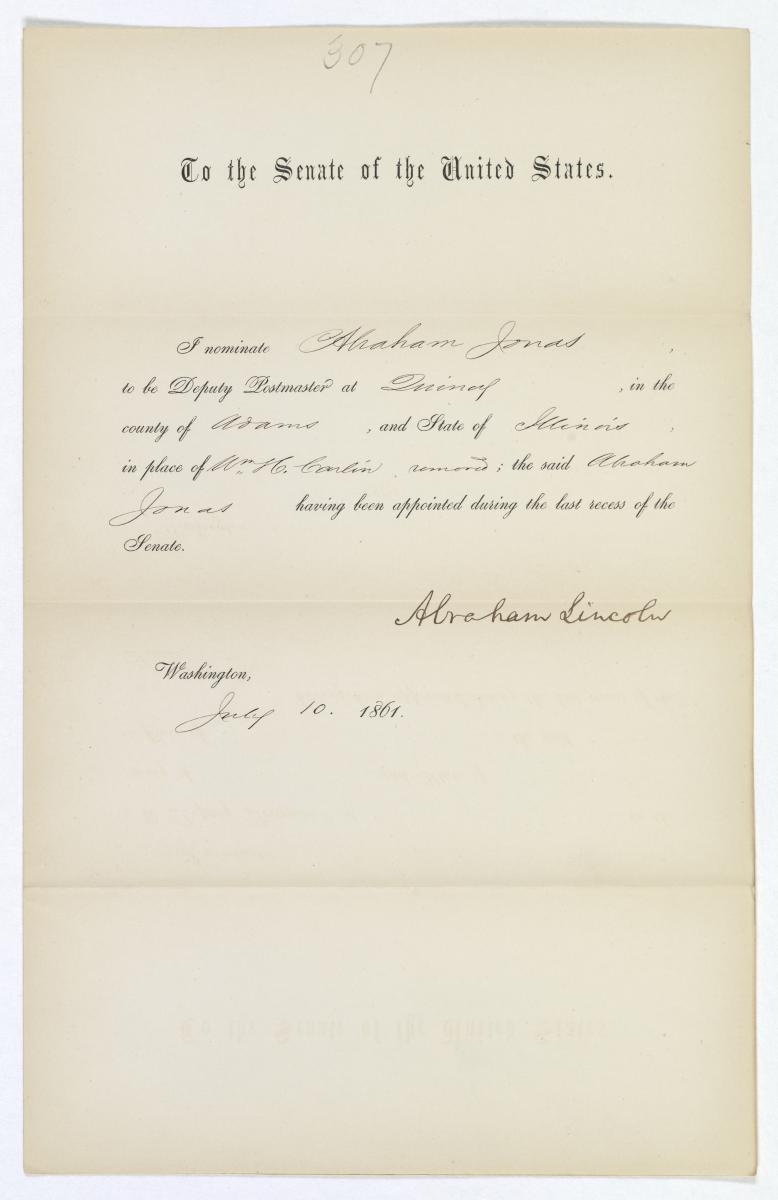 307
To the Senate of the United States.
I nominate Abraham Jonas ,
to be Deputy Postmaster at Quincy , in the
county of Adams , and State of Illinois ,
in place of Wm H. Carlin removed; the said Abraham
Jonas having been appointed during the last recess of the
Senate.
Abraham Lincoln
Washington,
July 10. 1861.